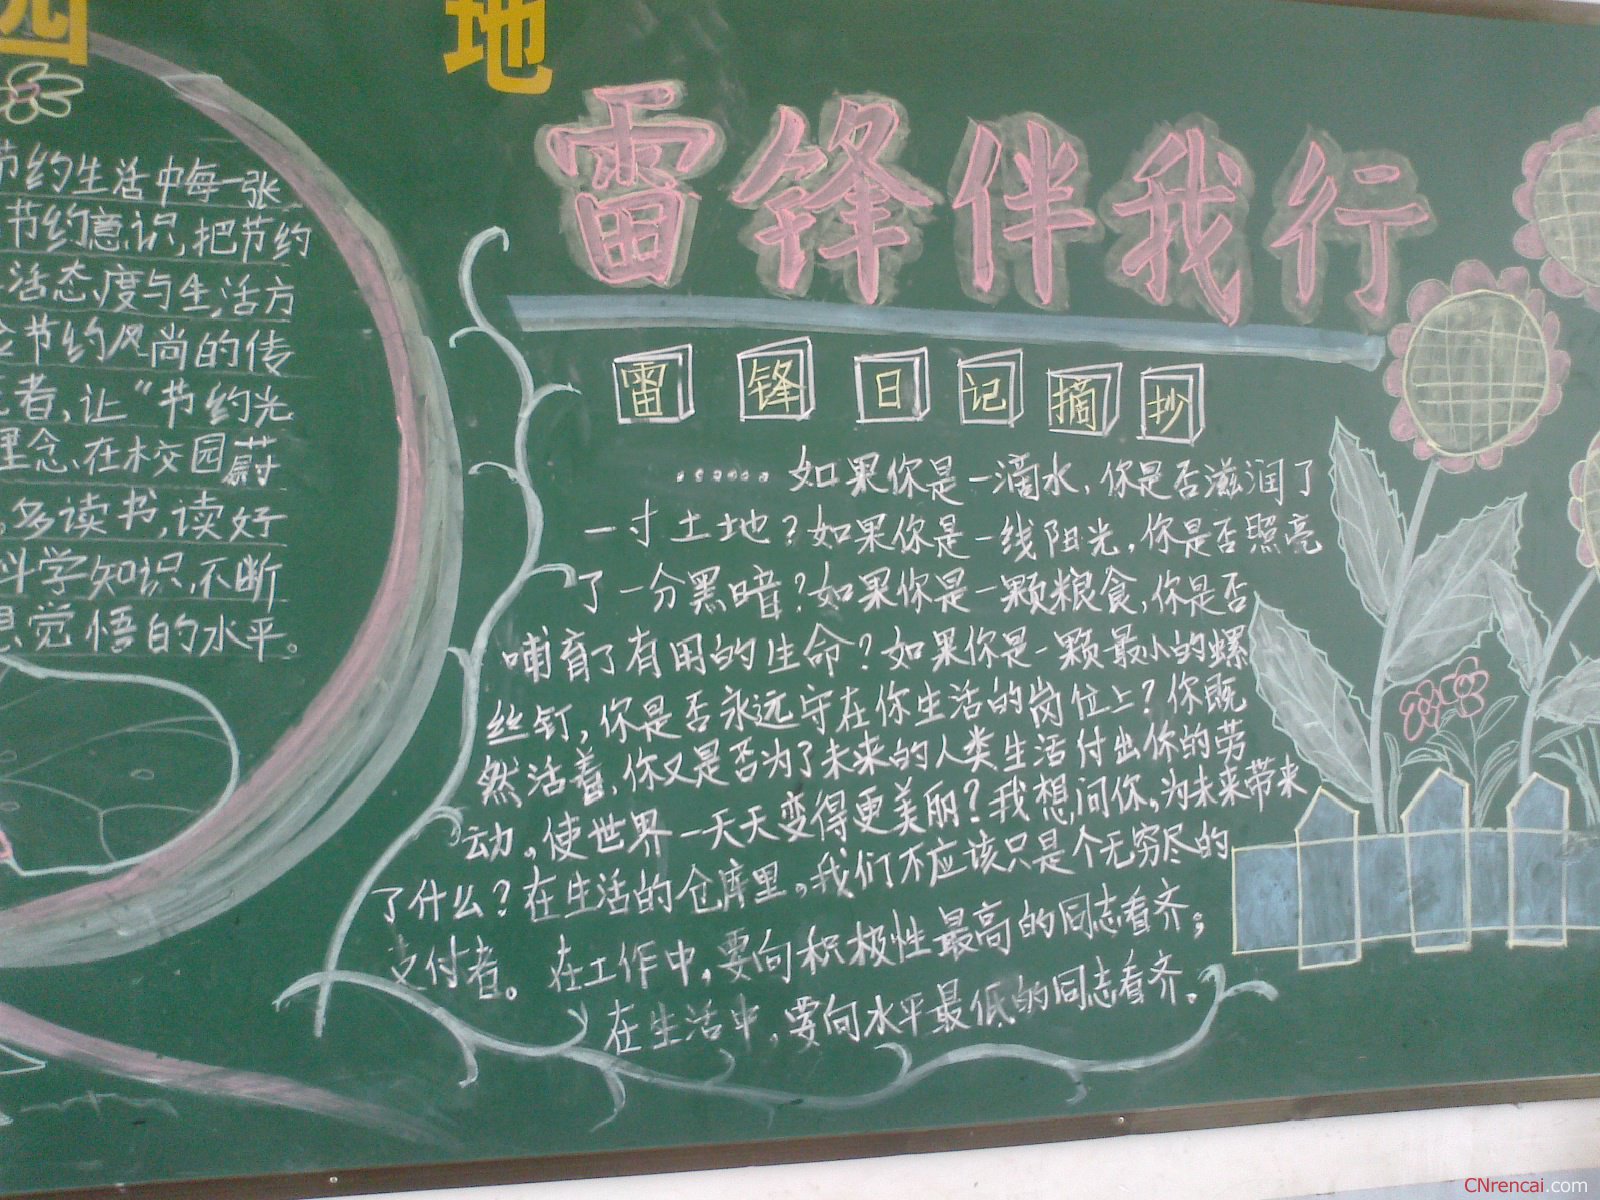 园 地
节约生活中每一张
节约意识,把节约
活态度与生活方
节约风尚的传
者,让“节约光
理念、在校园蔚
多读书,读好
科学知识,不断
觉悟的水平。
雷锋伴我行
雷锋日记摘抄
……如果你是一滴水,你是否滋润了
一寸土地?如果你是一线阳光,你是否照亮
了一分黑暗?如果你是一颗粮食,你是否
哺育了有用的生命?如果你是一颗最小的螺
丝钉,你是否永远守在你生活的岗位上?你既
然活着,你又是否为了未来的人类生活付出你的劳
动,使世界一天天变得更美丽?我想问你,为未来带来
了什么?在生活的仓库里,我们不应该只是个无穷尽的
支付者。在工作中,要向积极性最高的同志看齐;
在生活中,要向水平最低的同志看齐。
CNrencai.com